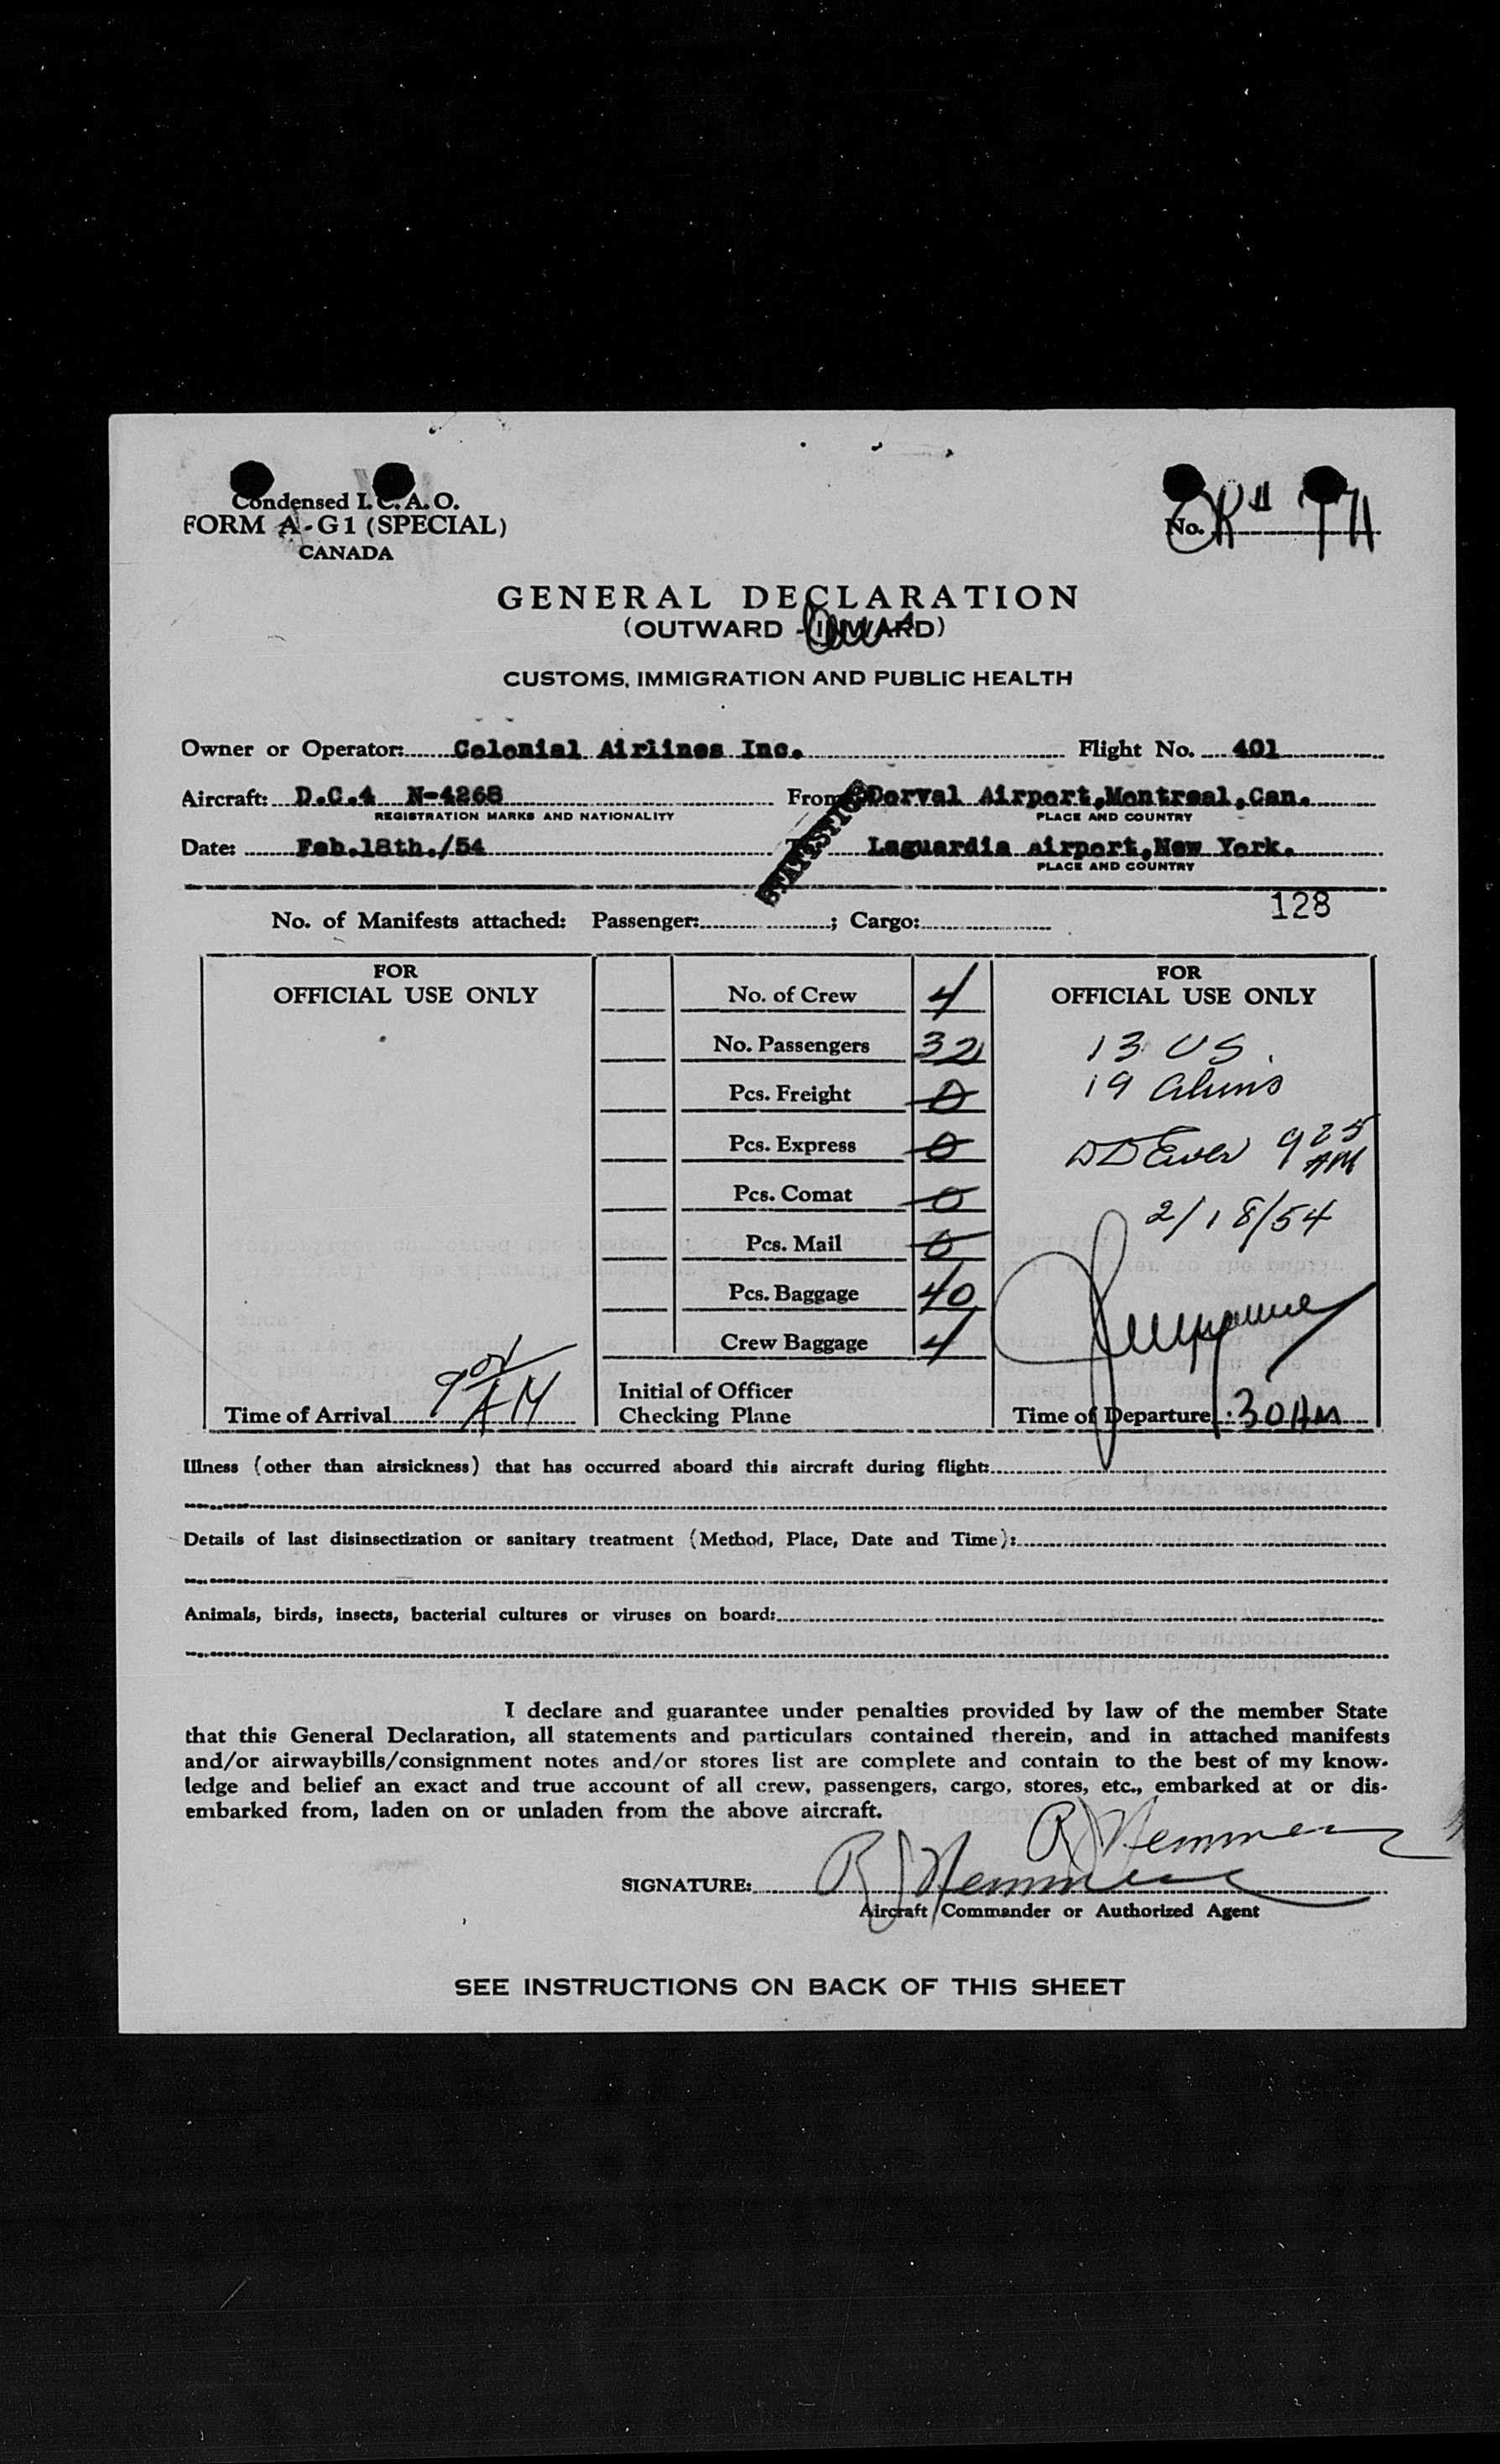 Condensed I.C.A.O.
FORM A-G1 (SPECIAL)
CANADA
No.
GENERAL DECLARATION
(OUTWARD - INWARD)
CUSTOMS, IMMIGRATION AND PUBLIC HEALTH
Owner or Operator: Colonial Airlines Inc. Flight No. 401
Aircraft: D.C.4 N-4268 From Dorval Airport,Montreal,Can.
REGISTRATION MARKS AND NATIONALITY PLACE AND COUNTRY
Date: Feb.18th./54 Laguardia airport,New York.
PLACE AND COUNTRY
STATISTICS
128
No. of Manifests attached: Passenger: ; Cargo:
FOR
OFFICIAL USE ONLY
No. of Crew 4
No. Passengers 32
Pcs. Freight 0
Pcs. Express 0
Pcs. Comat 0
Pcs. Mail 0
Pcs. Baggage 40
Crew Baggage 4
FOR
OFFICIAL USE ONLY
13 US.
19 aliens
925 AM
2/18/54
Time of Arrival AM
Initial of Officer
Checking Plane
Time of Departure :30AM
Illness (other than airsickness) that has occurred aboard this aircraft during flight:
Details of last disinsectization or sanitary treatment (Method, Place, Date and Time):
Animals, birds, insects, bacterial cultures or viruses on board:
I declare and guarantee under penalties provided by law of the member State
that this General Declaration, all statements and particulars contained therein, and in attached manifests
and/or airwaybills/consignment notes and/or stores list are complete and contain to the best of my know-
ledge and belief an exact and true account of all crew, passengers, cargo, stores, etc., embarked at or dis-
embarked from, laden on or unladen from the above aircraft.
SIGNATURE:
Aircraft Commander or Authorized Agent
SEE INSTRUCTIONS ON BACK OF THIS SHEET